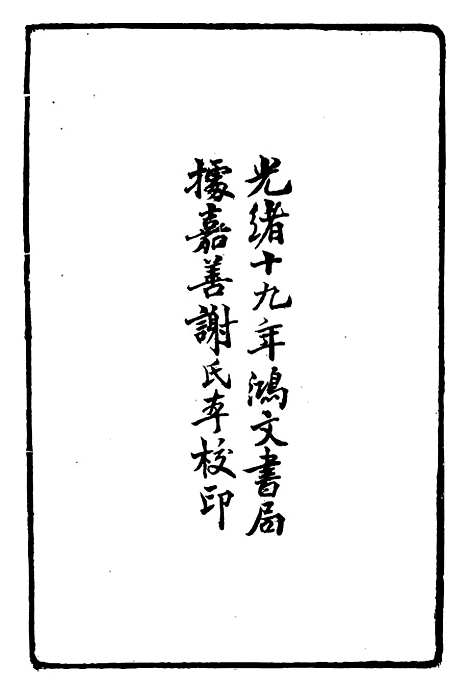 光緒十九年鴻文書局
據嘉善謝氏本校印